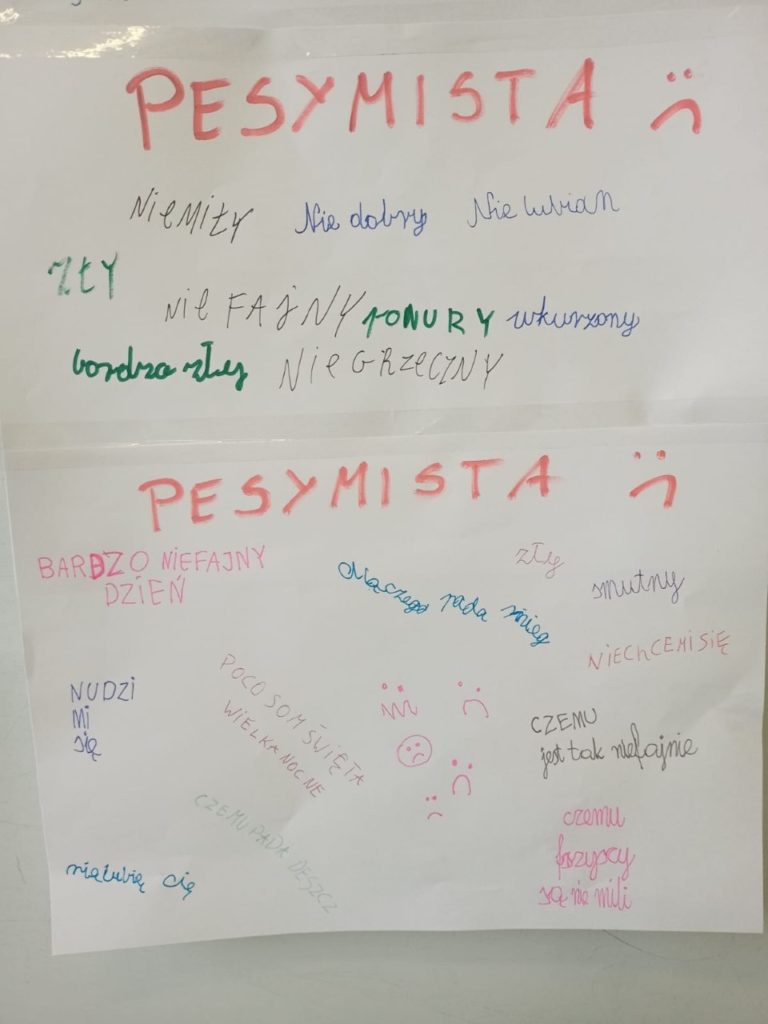 PESYMISTA
NIEMIŁY Nie dobry Nie lubian
ZŁY
NIE FAJNY PONURY wkurzony
bardzo zły NIEGRZECZNY
PESYMISTA
BARDZO NIEFAJNY
DZIEŃ
dlaczego pada śnieg
zły
smutny
NIECHCEMISIĘ
NUDZI
Mi
się
POCO SOM ŚWIĘTA
WIELKANOCNE
CZEMU
jest tak niefajnie
CZEMU PADA DESZCZ
czemu
są nie mili
nielubię cię